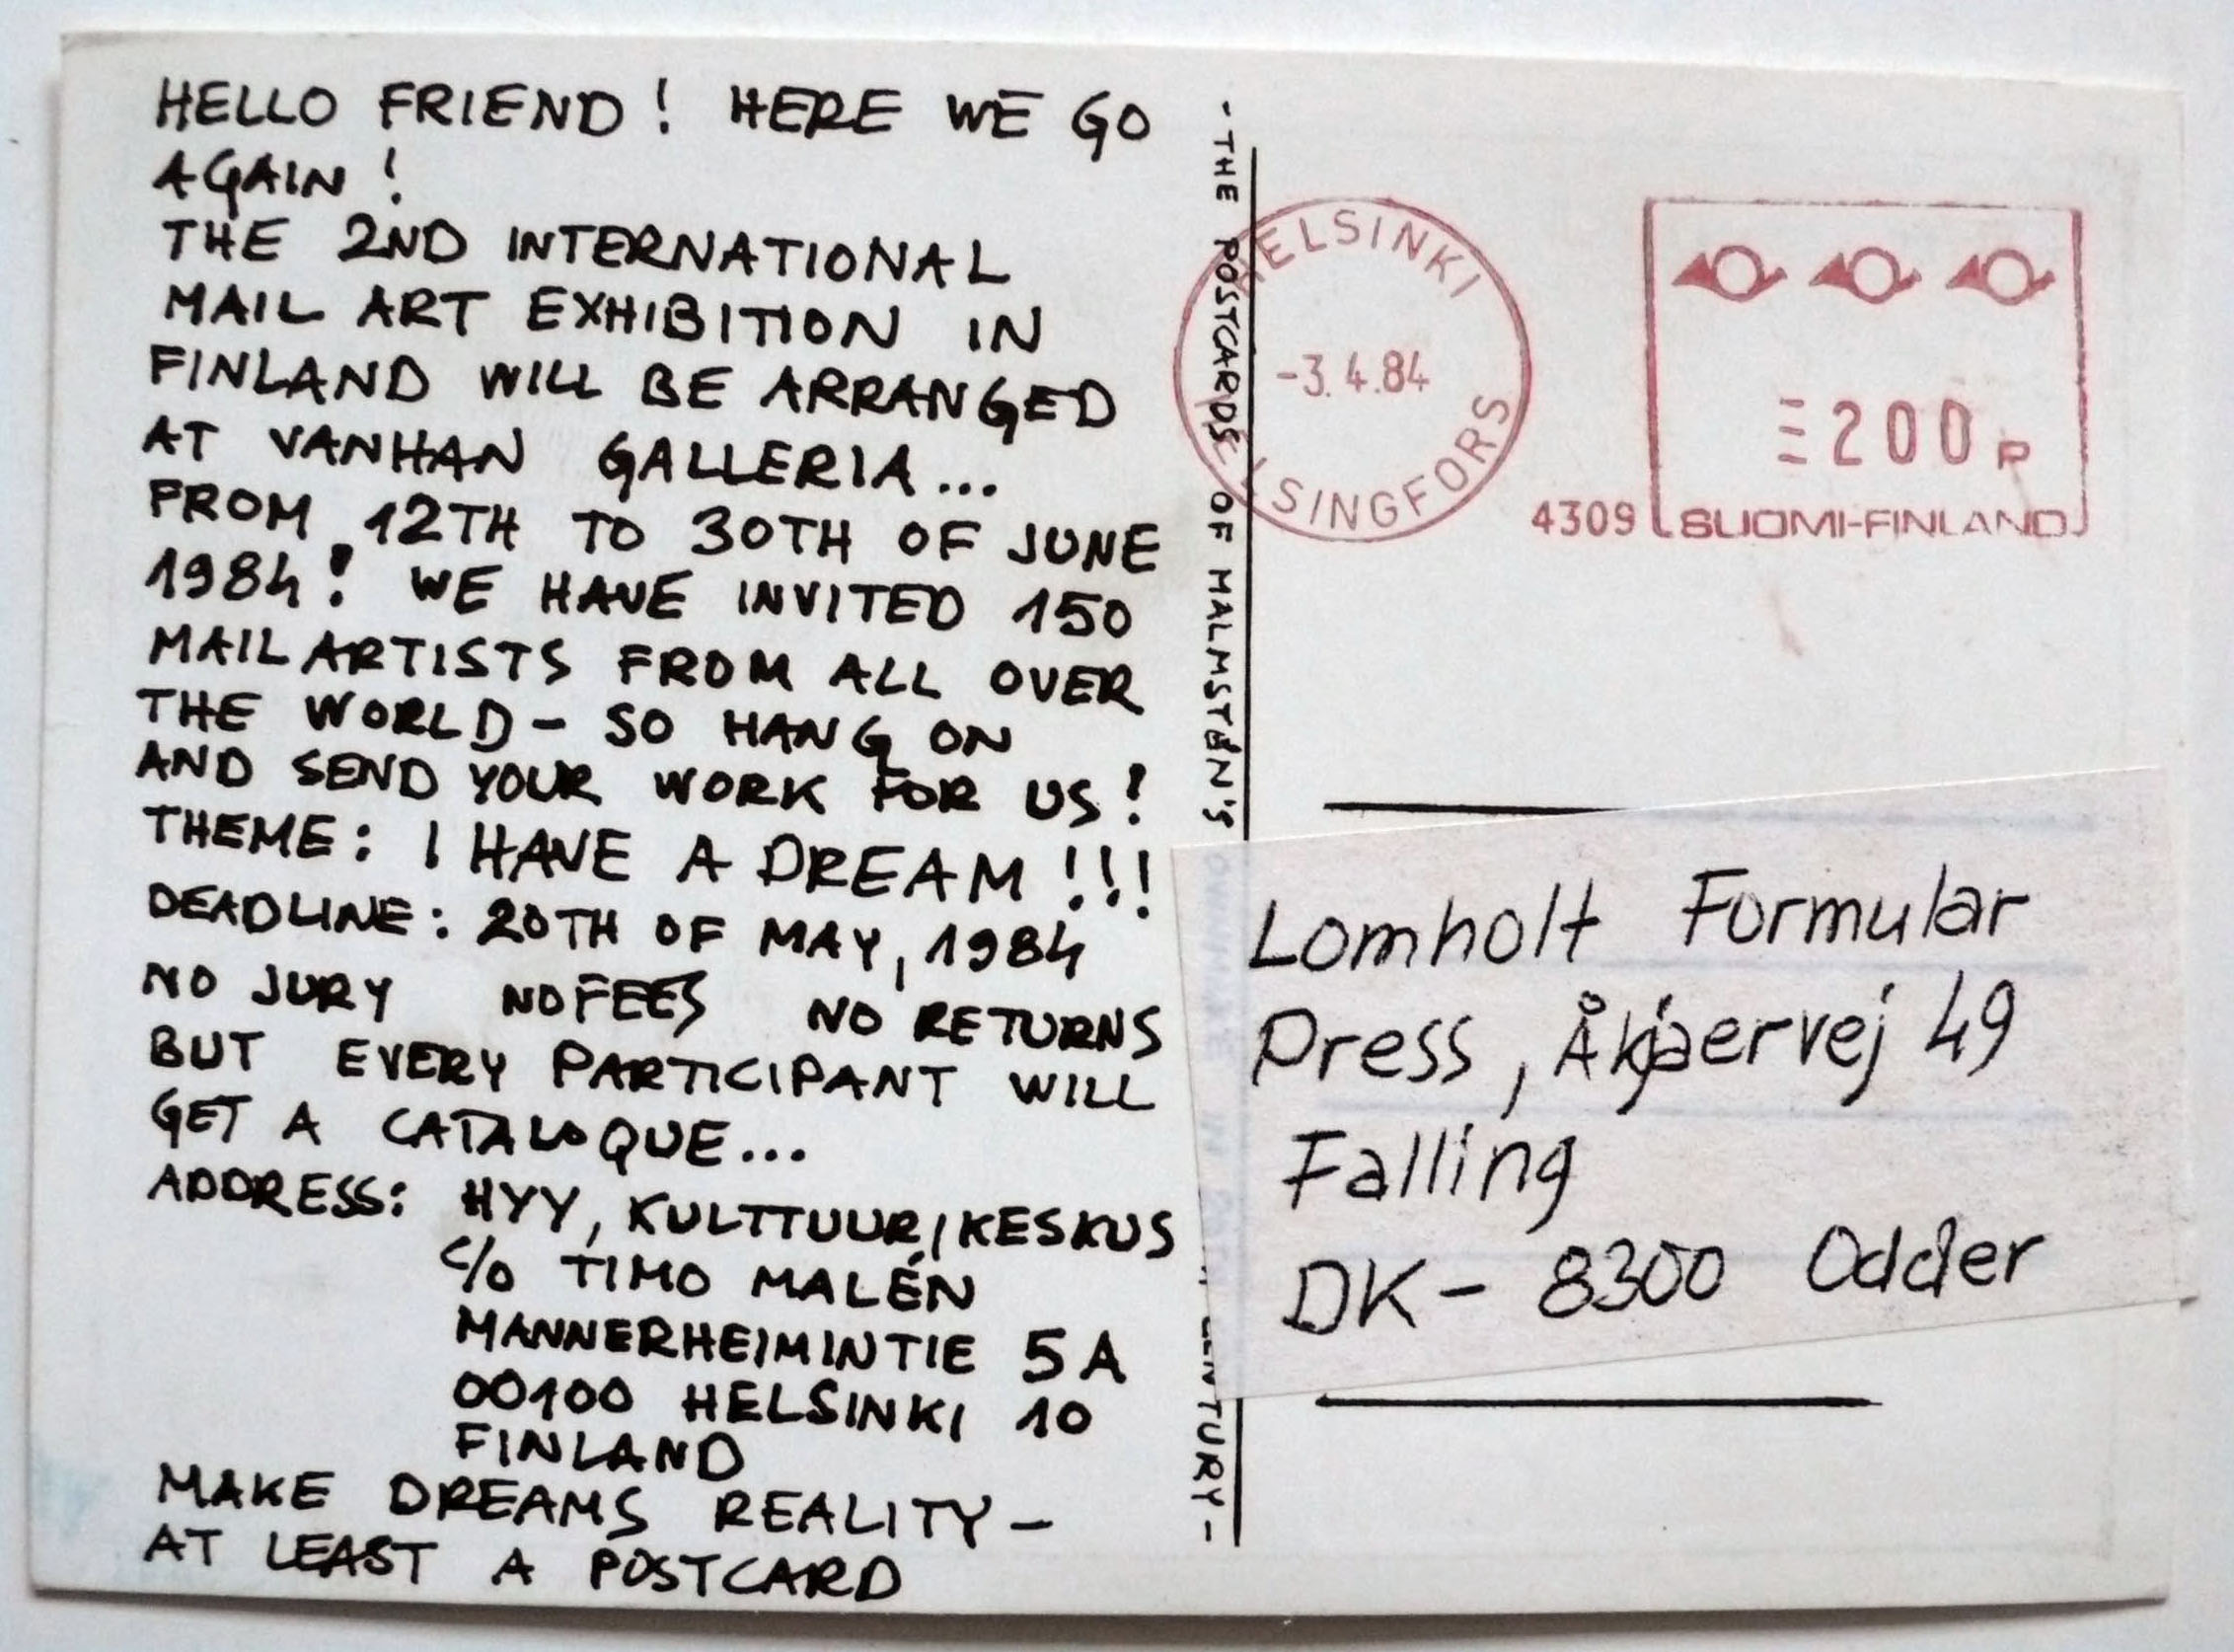 HELLO FRIEND! HERE WE GO
AGAIN!
THE 2ND INTERNATIONAL
MAIL ART EXHIBITION IN
FINLAND WILL BE ARRANGED
AT VANHAN GALLERIA...
FROM 12TH TO 30TH OF JUNE
1984! WE HAVE INVITED 150
MAIL ARTISTS FROM ALL OVER
THE WORLD - SO HANG ON
AND SEND YOUR WORK FOR US!
THEME: I HAVE A DREAM!!!
DEADLINE: 20TH OF MAY, 1984
NO JURY NO FEES NO RETURNS
BUT EVERY PARTICIPANT WILL
GET A CATALOQUE...
ADDRESS: HYY, KULTTUURIKESKUS
c/o TIMO MALÉN
MANNERHEIMINTIE 5 A
00100 HELSINKI 10
FINLAND
MAKE DREAMS REALITY -
AT LEAST A POSTCARD
- THE POSTCARDS OF MALMSTÉN'S
HELSINKI
-3.4.84
HELSINGFORS
200 P
4309 SUOMI-FINLAND
Lomholt Formular
Press, Åkjaervej 49
Falling
DK- 8300 Odder